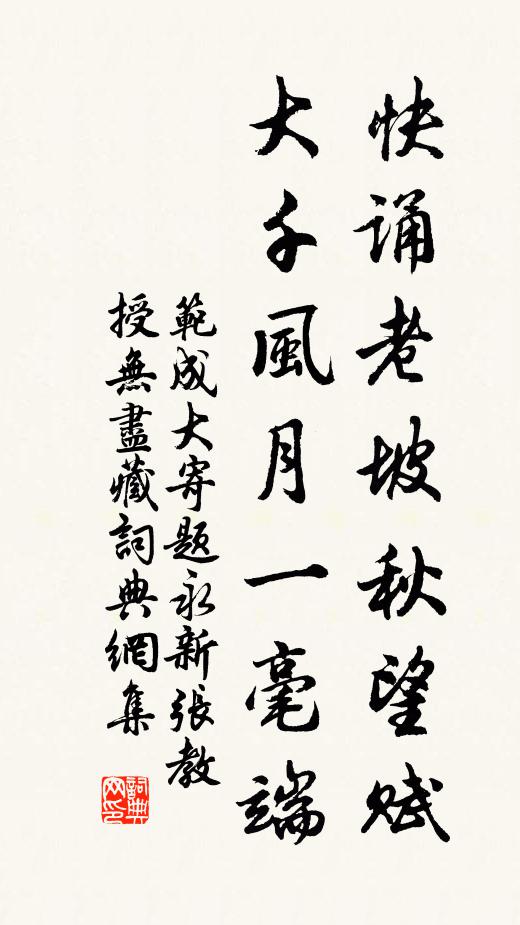 快诵老坡秋望赋
大千風月一毫端
範成大寄題永新張教
授無盡藏詞典網集
詞典
网印